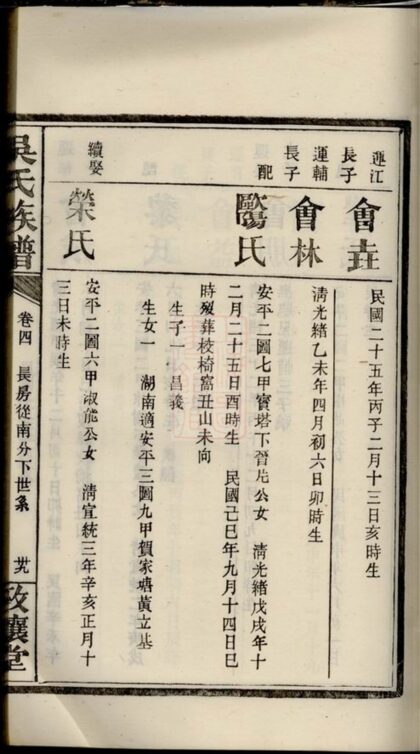 運江
長子
會
民國二十五年丙子二月十三日亥時生
運輔
長子
會林
清光緒乙未年四月初六日卯時生
配
氏
安平二圖七甲寶塔下晉片公女 清光緒戊戌年十
二月二十五日酉時生 民國己巳年九月十四日巳
時歿葬枝椅窩丑山未向
生子一 昌義
生女一 湖南適安平三圖九甲賀家塘黃立基
續娶
榮氏
安平二圖六甲淑能公女 清宣統三年辛亥正月十
三日未時生
吳氏族譜
卷四 長房從南分下世系 廿九
讓堂